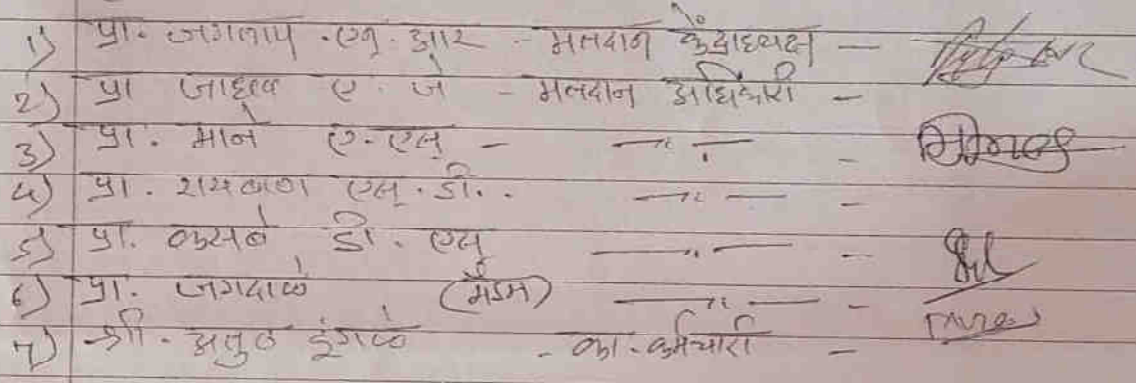 1) प्रा. जगताप .एन. आर - मतदान केंद्राध्यक्ष -
2) प्रा जाधव ए. जे - मतदान अधिकारी -
3) प्रा. माने ए.एल - -〃- -
4) प्रा. रायबाण एल. डी. . -〃- -
5) प्रा. कसबे डी. एस -〃- -
6) प्रा. जगदाळे (मॅडम) -〃- -
7) श्री. अतुल इंगळे - का. कर्मचारी -